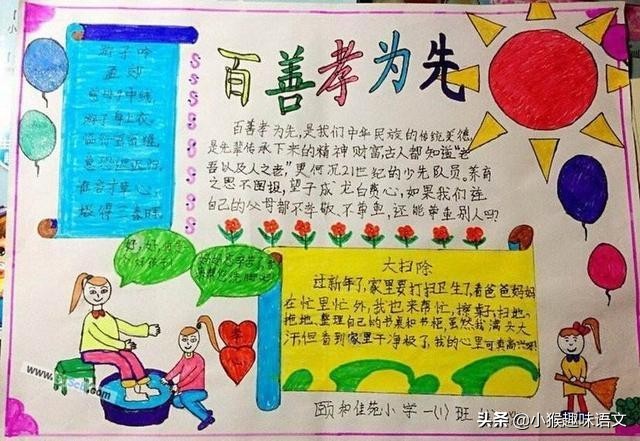 百善孝为先
游子吟
孟郊
慈母手中线,
游子身上衣,
临行密密缝,
意恐迟迟归。
谁言寸草心,
报得三春晖。
百善孝为先,是我们中华民族的传统美德,
是先辈传承下来的精神财富,古人都知道“老
吾以及人之老,”更何况21世纪的少先队员。养育
之恩不图报,望子成龙白费心,如果我们连
自己的父母都不孝敬、不尊重,还能尊重别人吗?
好,好,
好孩子!
妈妈,您辛苦了,我
来帮您洗脚吧!
孝
大扫除
过新年了,家里要打扫卫生了,看爸爸妈妈
在忙里忙外,我也来帮忙,擦桌子、扫地、
拖地、整理自己的书桌和书柜,虽然我满头大
汗但看到家里干净极了,我的心里可真高兴呀!
颐和佳苑小学一(1)班
www.
头条 @小猴趣味语文